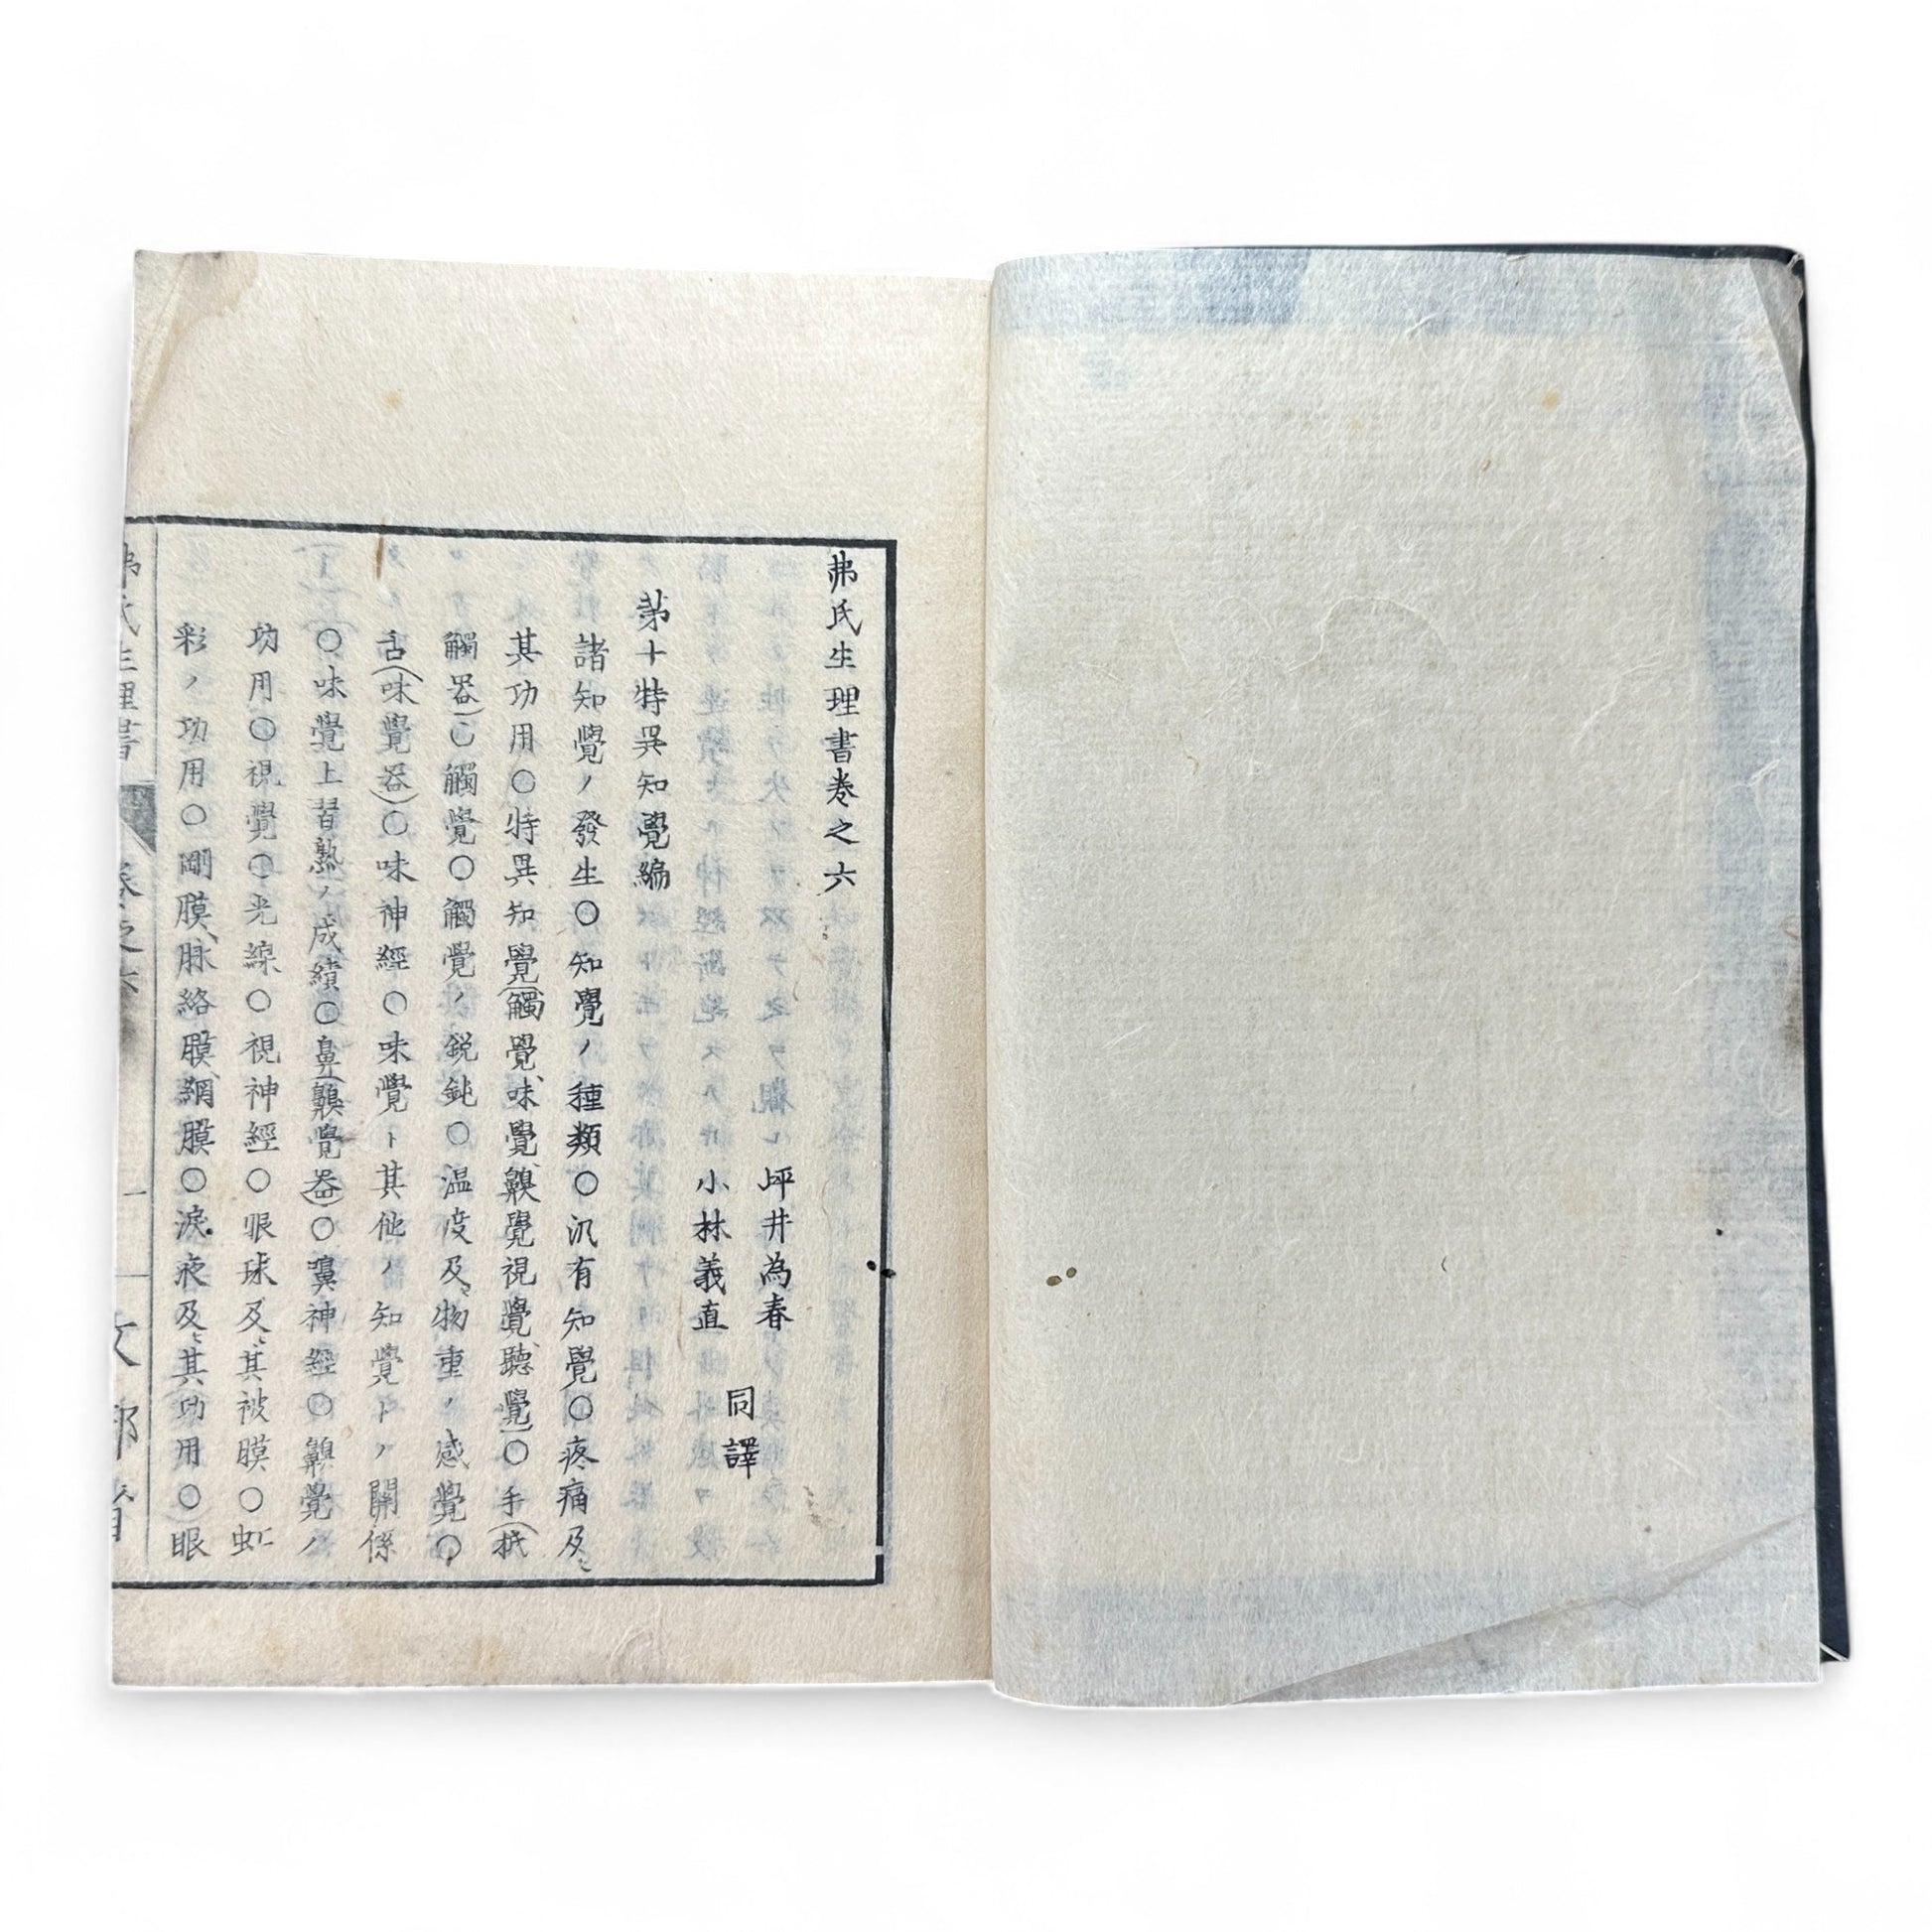 弗氏生理書卷之六
坪井為春
小林義直
同譯
第十特異知覺編
諸知覺ノ發生〇知覺ノ種類〇汎有知覺〇疼痛及ヒ
其功用〇特異知覺(觸覺、味覺、齅覺、視覺、聽覺)〇手(抵
觸器)〇觸覺〇觸覺ノ鋭鈍〇温度及ヒ物重ノ感覺〇
舌(味覺器)〇味神經〇味覺ト其他ノ知覺トノ關係
〇味覺上習熟ノ成績〇鼻(齅覺器)〇嗅神經〇齅覺ノ
功用〇視覺〇光線〇視神經〇眼球及ヒ其被膜〇虹
彩ノ功用〇剛膜、脉絡膜、網膜〇淚液及ヒ其功用〇眼
弗氏生理書 卷之六 一 文部省